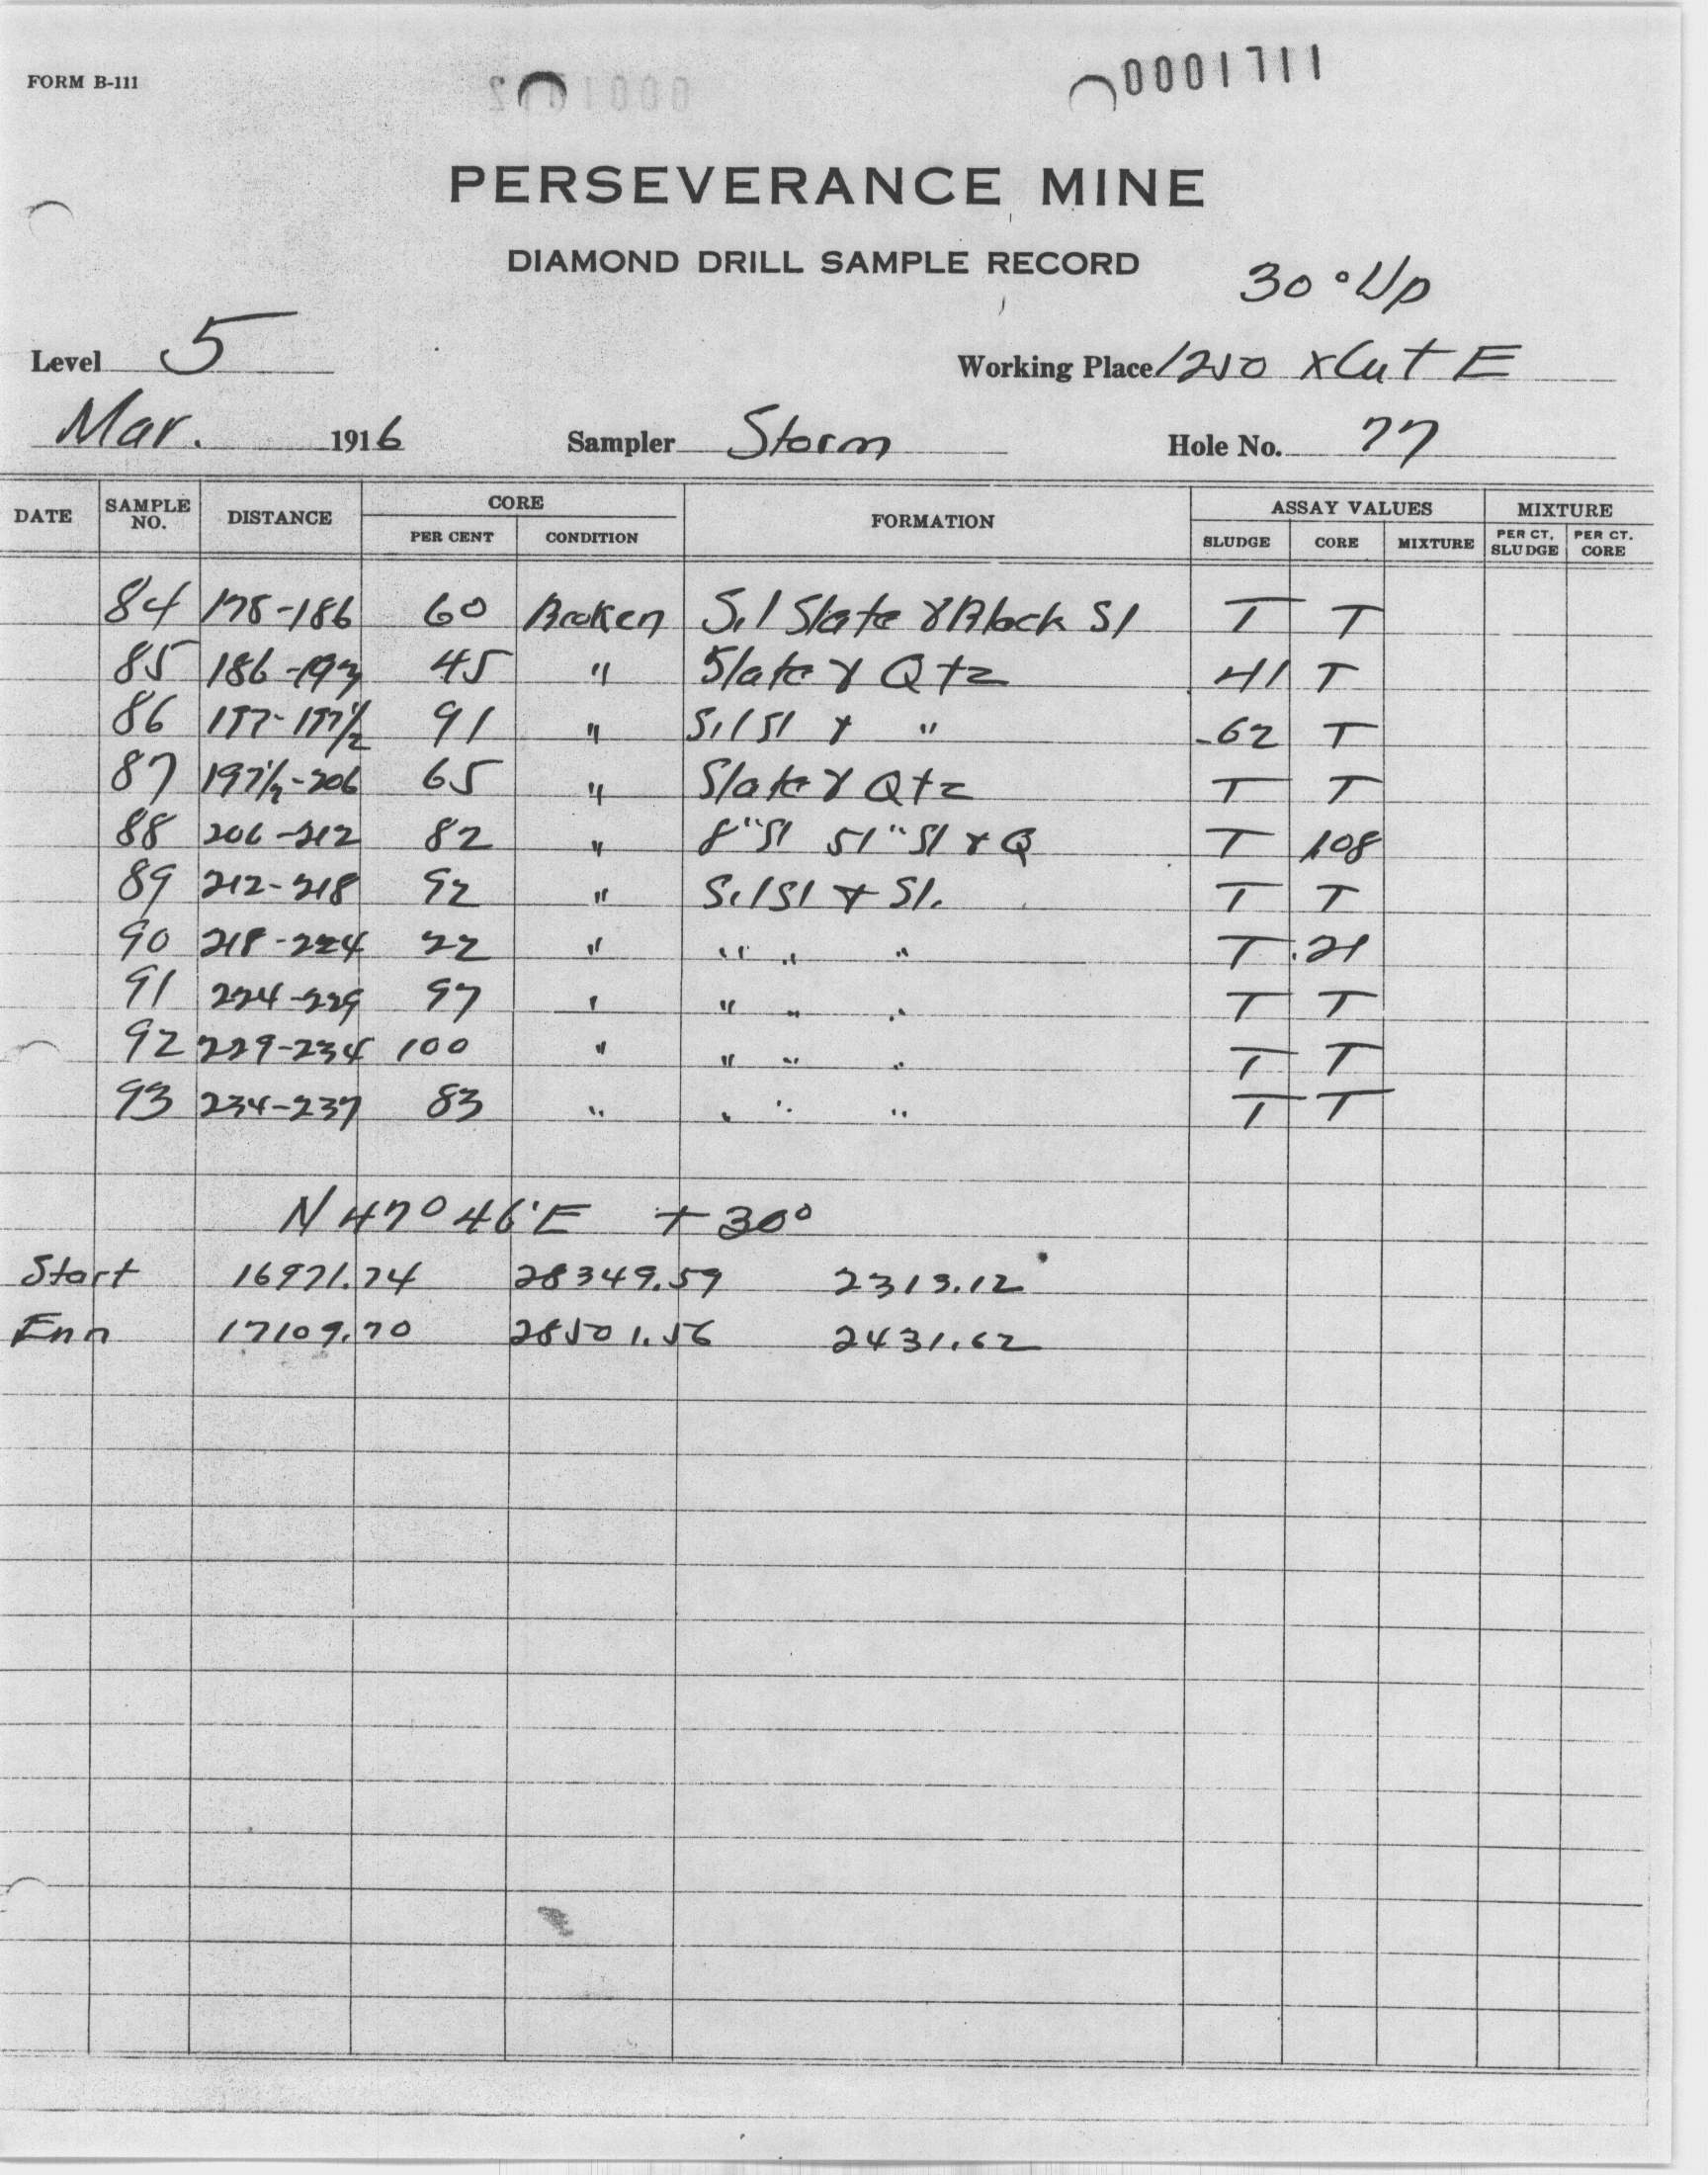 FORM B-111
0001711
PERSEVERANCE MINE
DIAMOND DRILL SAMPLE RECORD
30° Up
Level 5 Working Place 1250 XCut E
Mar. 1916 Sampler Storm Hole No. 77
DATE SAMPLE NO. DISTANCE CORE PER CENT CONDITION FORMATION ASSAY VALUES SLUDGE CORE MIXTURE MIXTURE PER CT. SLUDGE PER CT. CORE
84 178-186 60 Broken Sil Slate & Block Sl T T
85 186-197 45 " Slate & Qtz .41 T
86 197-197 1/2 91 " Sil Sl & " .62 T
87 197 1/2-206 65 " Slate & Qtz T T
88 206-212 82 " 8" Sl 51" Sl & Q T 1.08
89 212-218 92 " Sil Sl & Sl. T T
90 218-224 22 " " " " T .21
91 224-229 97 " " " " T T
92 229-234 100 " " " " T T
93 234-237 83 " " " " T T
N 47° 46' E + 30°
Start 16971.74 28349.59 2313.12
End 17109.70 28501.56 2431.62